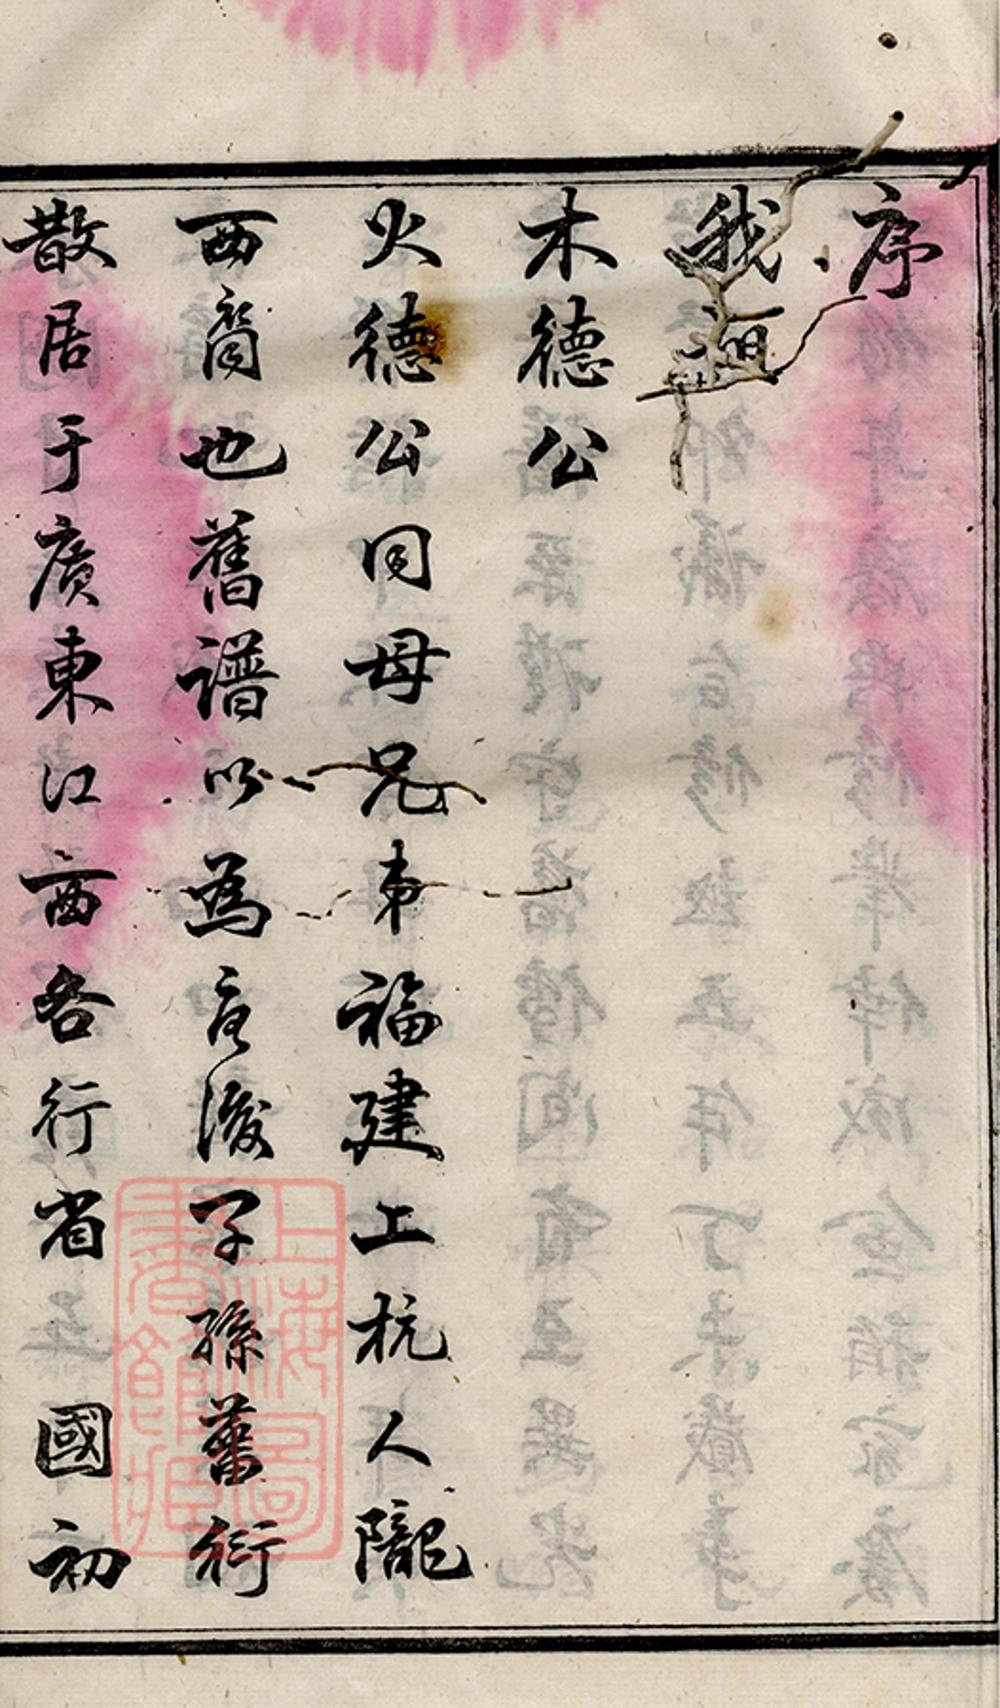 序
我祖
木德公
火德公同母兄弟福建上杭人隴
西裔也舊譜以為言後子孫蕃衍
散居于廣東江西各行省　國初
上海圖
書館藏